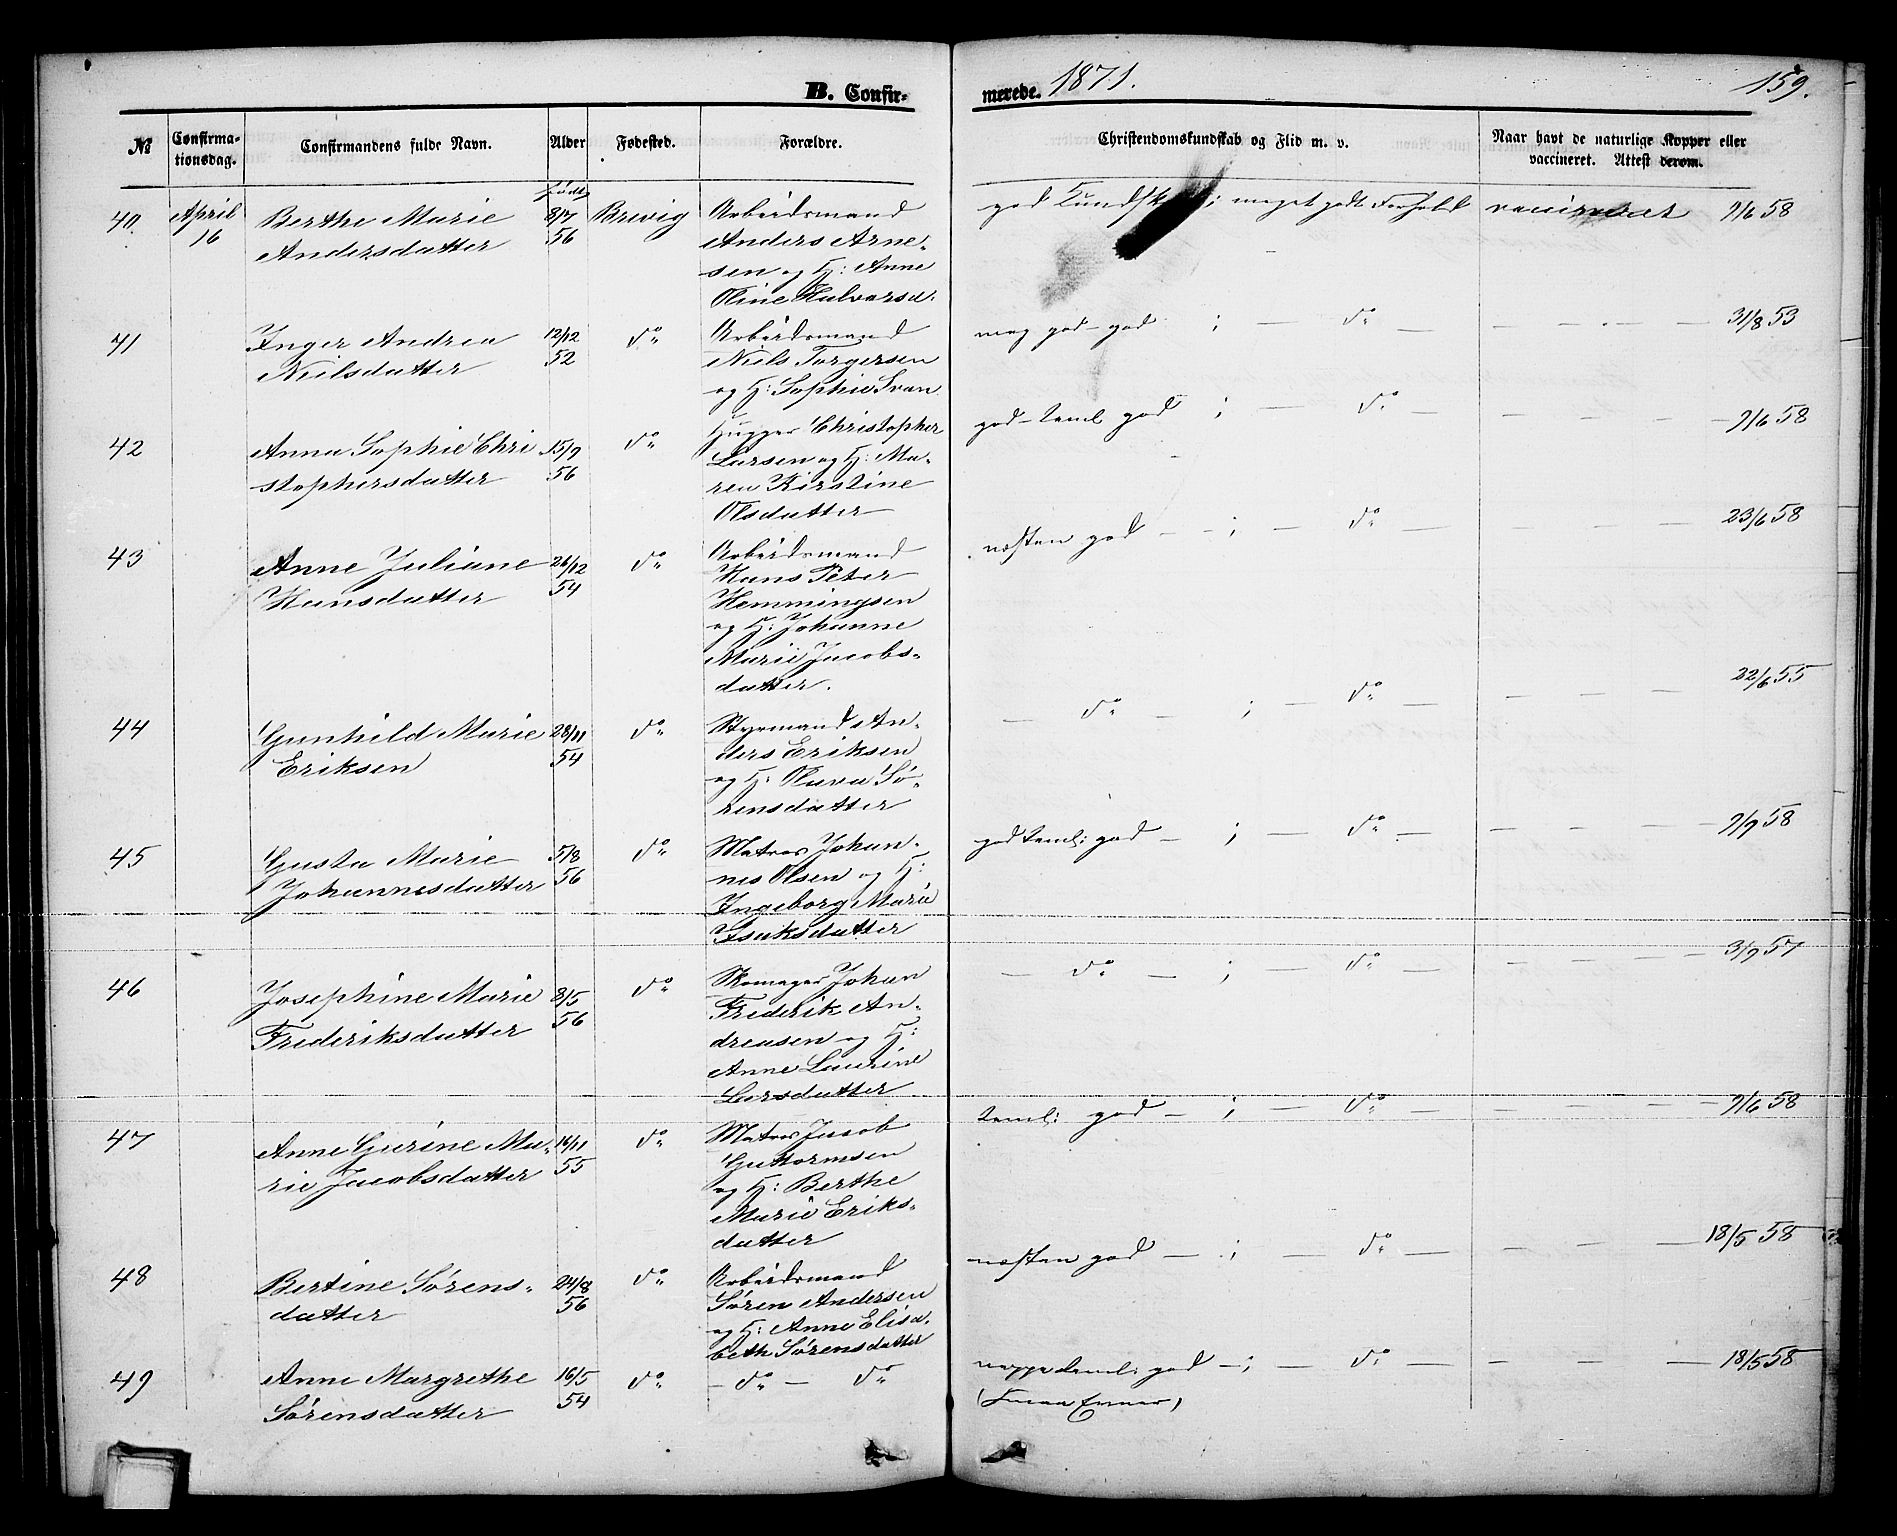 B. Confirmerede. 1871. 159.
№ Confirmationsdag. Confirmandens fulde Navn. Alder Fødested. Forældre. Christendomskundskab og Flid m. v. Naar havt de naturlige Kopper eller vaccineret. Attest derom.
født
40 April 16 Berthe Marie Andersdatter 8/7 56 Brevig Arbeidsmand Anders Arnesen og H: Anne Oline Halvorsd. god ; meget godt Forhold vaccineret 7/6 58
41 Inger Andrea Nielsdatter 12/12 52 do Arbeidsmand Niels Torgersen og H: Sophie Svan meg god-god ; — do — — . — 31/8 53
42 Anna Sophie Christophersdatter 15/9 56 do Hugger Christopher Larsen og H: Maren Kirstine Olsdatter god-teml god ; — do — — — — 7/6 58
43 Anne Juliane Hansdatter 26/12 54 do Arbeidsmand Hans Peter Hemmingsen og H: Johanne Marie Jacobsdatter. næsten god — ; — do — — — — 23/6 58
44 Gunhild Marie Eriksen 28/11 54 do Styrmand Anders Eriksen og H: Olava Sørensdatter — do — ; — do — — — — 22/6 55
45 Gusta Marie Johannesdatter 5/8 56 do Matros Johannes Olsen og H: Ingeborg Marie Isaksdatter god teml: god — ; — do — — — — 7/9 58
46 Josephine Marie Frederiksdatter 8/5 56 do Skomager Johan Frederik Andreasen og H: Anne Laurine Larsdatter — do — ; — do — — — — 3/9 57
47 Anne Gurine Marie Jacobsdatter 16/11 55 do Matros Jacob Guttormsen og H: Berthe Marie Eriksdatter teml: god — ; — do — — — — 7/6 58
48 Bertine Sørensdatter 24/8 56 do Arbeidsmand Søren Andersen og H: Anne Elisabeth Sørensdatter næsten god — ; — do — — — — 18/5 58
49 Anne Margrethe Sørensdatter 16/5 54 do — do — do neppe teml: god — ; — do — — — — 18/5 58
(Smaa Evner)